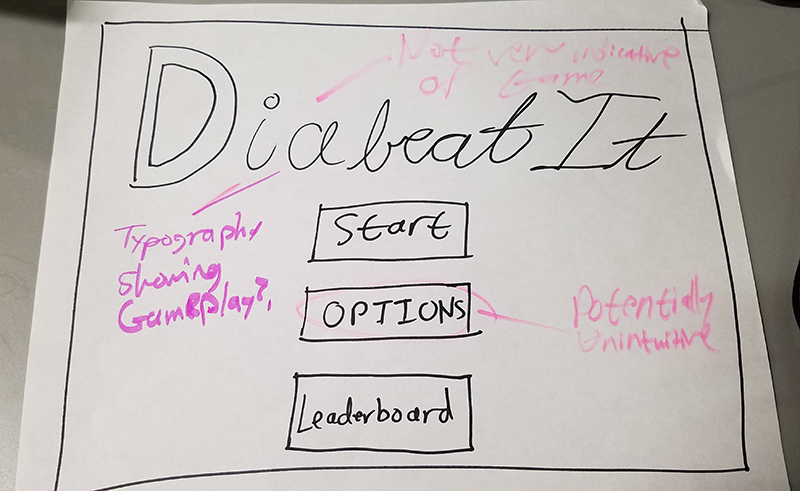 Not very indicative
of Game
DiabeatIt
Typography
showing
Gameplay?
Start
OPTIONS
Potentially
Unintuitive
Leaderboard